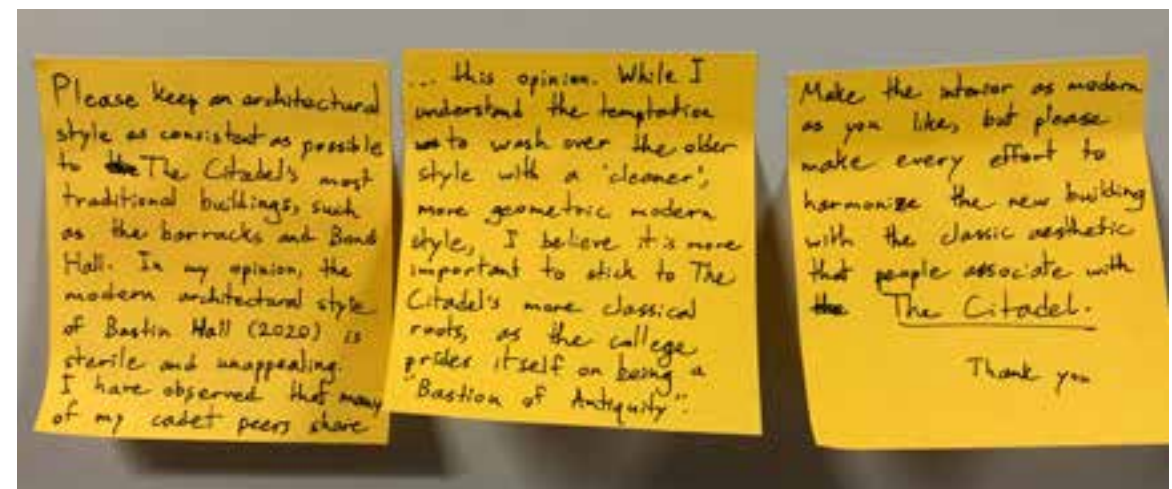 Please keep an architectural
style as consistent as possible
to The Citadel's most
traditional buildings, such
as the barracks and Bond
Hall. In my opinion, the
modern architectural style
of Bastin Hall (2020) is
sterile and unappealing.
I have observed that many
of my cadet peers share
... this opinion. While I
understand the temptation
to wash over the older
style with a 'cleaner',
more geometric modern
style, I believe it is more
important to stick to The
Citadel's more classical
roots, as the college
prides itself on being a
"Bastion of Antiquity".
Make the interior as modern
as you like, but please
make every effort to
harmonize the new building
with the classic aesthetic
that people associate with
the The Citadel.
Thank you